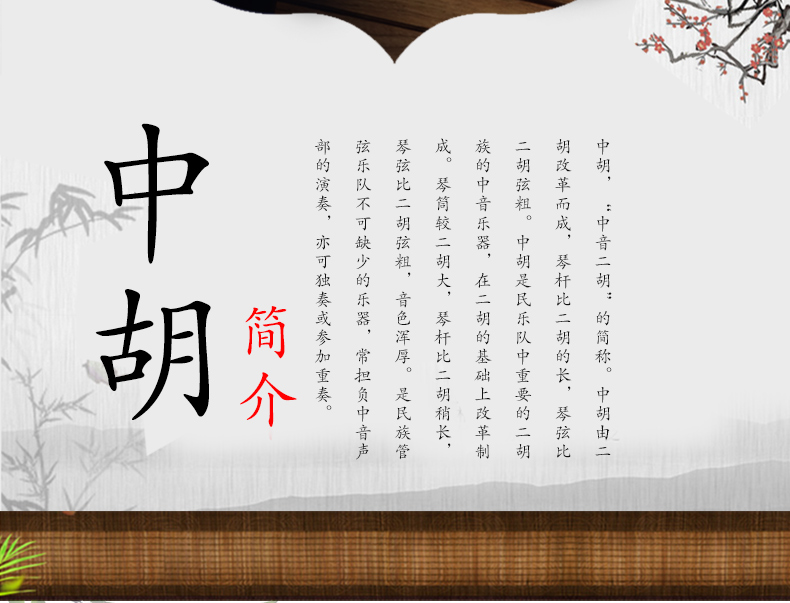 中胡
简介
中胡，“中音二胡”的简称。中胡由二
胡改革而成，琴杆比二胡的长，琴弦比
二胡弦粗。中胡是民乐队中重要的二胡
族的中音乐器，在二胡的基础上改革制
成。琴筒较二胡大，琴杆比二胡稍长，
琴弦比二胡弦粗，音色浑厚。是民族管
弦乐队不可缺少的乐器，常担负中音声
部的演奏，亦可独奏或参加重奏。